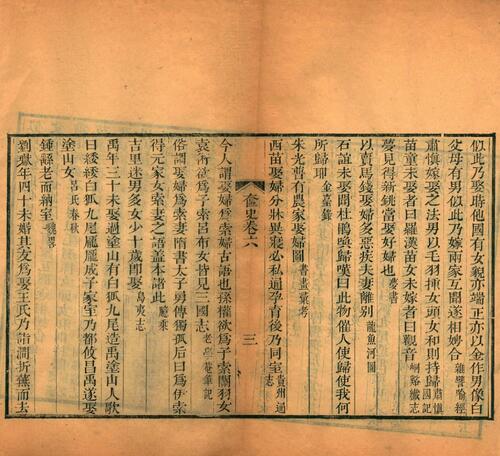 似此乃娶時他國有女貌亦端正亦以金作男像白
父母有男似此乃嫁兩家互聞遂相娉合雜譬喻經
肅慎嫁娶之法男以毛羽揷女頭女和則持歸肅慎國記
苗童未娶者曰羅漢苗女未嫁者曰觀音峒谿纖志
夢見得新銚當娶好婦也夢書
以賣馬錢娶婦多惡疾夫妻離別龍魚河圖
石誼未娶聞杜鵑喚歸嘆曰此物催人使歸使我何
所歸耶金臺錄
朱光普有農家娶婦圖書畫彙考
西苗娶婦分牀異寢必私通孕育後乃同室貴州通志
奩史卷六
三
今人謂娶婦爲索婦古語也孫權欲爲子索關羽女
袁術欲爲子索呂布女皆見三國志老學庵筆記
俗謂娶婦爲索妻隋書太子勇傳獨孤后曰爲伊索
得元家女索妻之語蓋本諸此雞菉
吉里迷男多女少十歲即娶島夷志
禹年三十未娶過塗山有白狐九尾造禹塗山人歌
曰綏綏白狐九尾龐龐成子家室乃都攸昌禹遂娶
塗山女呂氏春秋
鍾繇老而納室魏畧
劉獻年四十未婚其友爲娶王氏乃詣澗折蘸而去